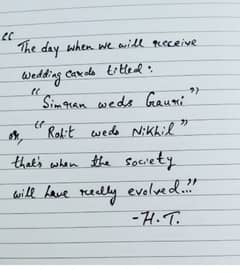 "
The day when we will receive
wedding cards titled :
"Simran weds Gauri"
or, "Rohit weds Nikhil"
that's when the society
will have really evolved..."
-H.T.